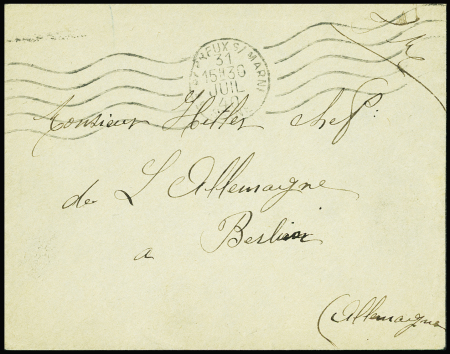 PERREUX S/ MARNE
31
15H30
JUIL
40
Monsieur Hitler chef
de L'Allemagne
a Berlin
(Allemagne